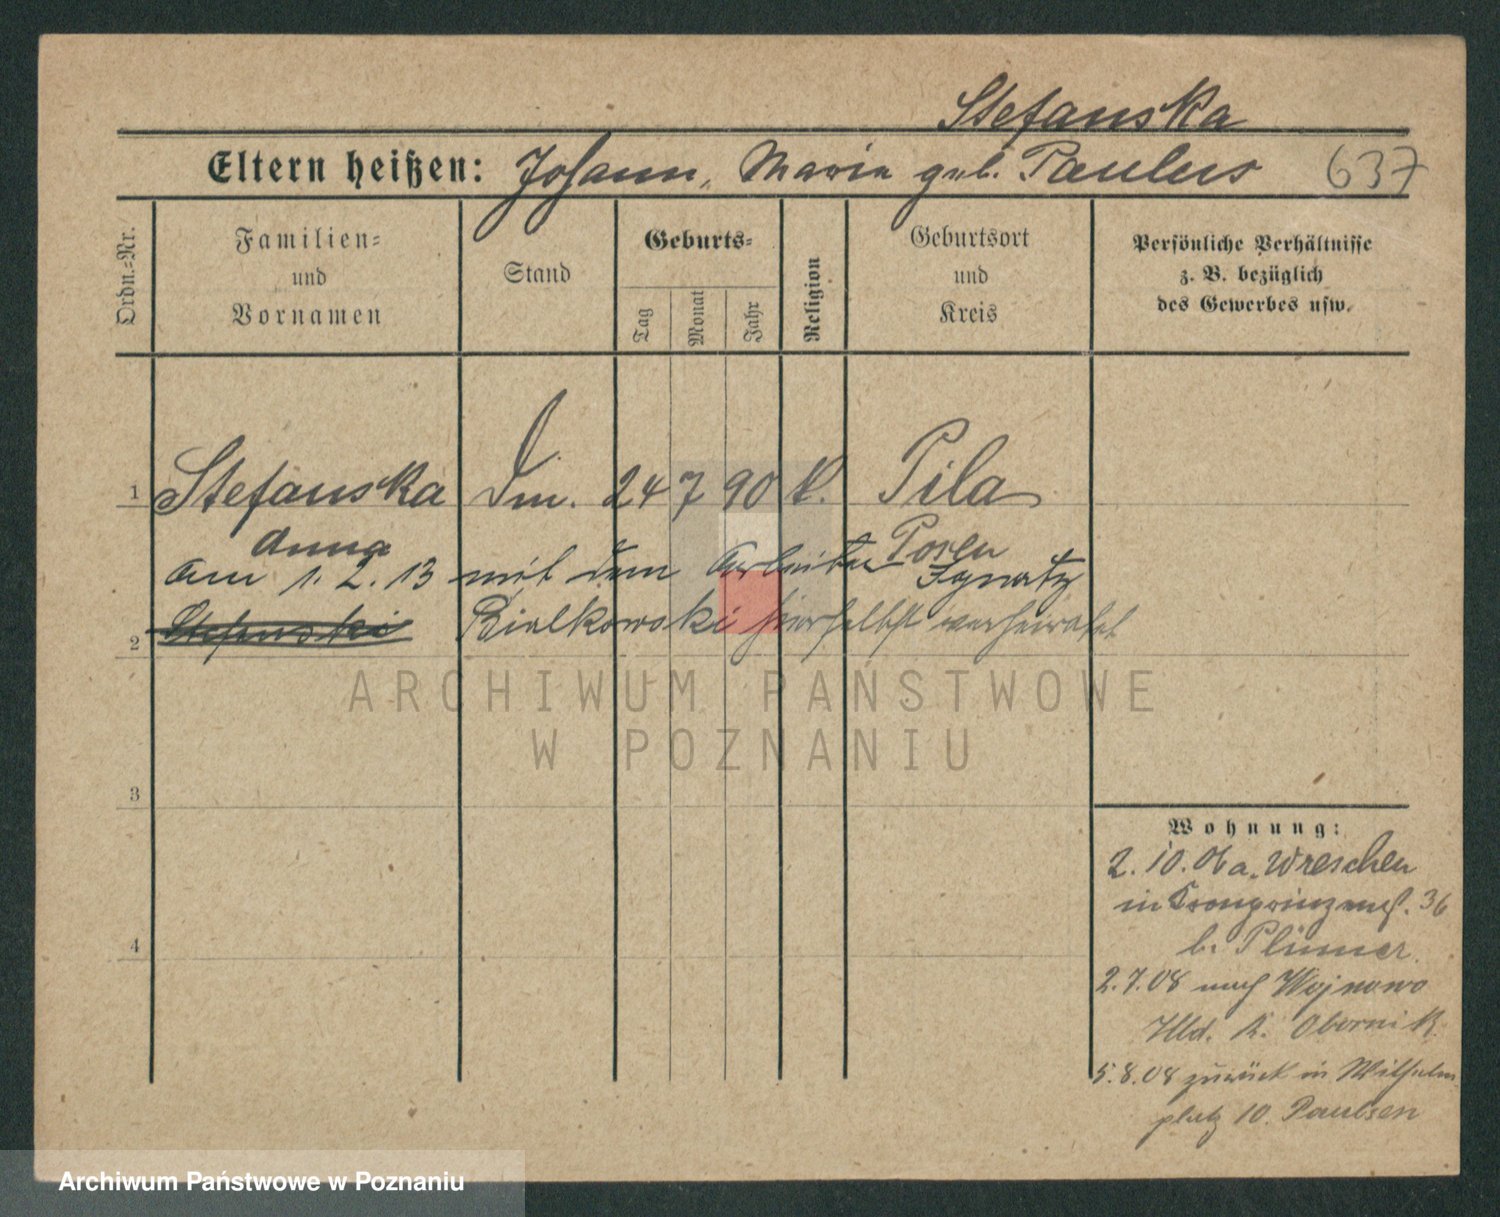 Stefanska
Eltern heißen: Johann, Maria geb. Paulus 637
Ordn.-Nr.
Familien- und Vornamen
Stand
Geburts-
Tag
Monat
Jahr
Religion
Geburtsort und Kreis
Persönliche Verhältnisse
z. B. bezüglich
des Gewerbes usw.
1 Stefanska Dm. 24 7 90 k. Pila
Anna Posen
am 1. 2. 13 mit dem Arbeiter Ignatz
2 Stefanski Bialkowski hierselbst verheiratet
3
4
Wohnung:
2. 10. 06 a. Wreschen
in Kronprinzenst. 36
b. Plümer.
2. 7. 08 nach Wojnowo
Hld. K. Obornik
5. 8. 08 zurück in Wilhelm
platz 10. Paulsen
ARCHIWUM PAŃSTWOWE
W POZNANIU
Archiwum Państwowe w Poznaniu